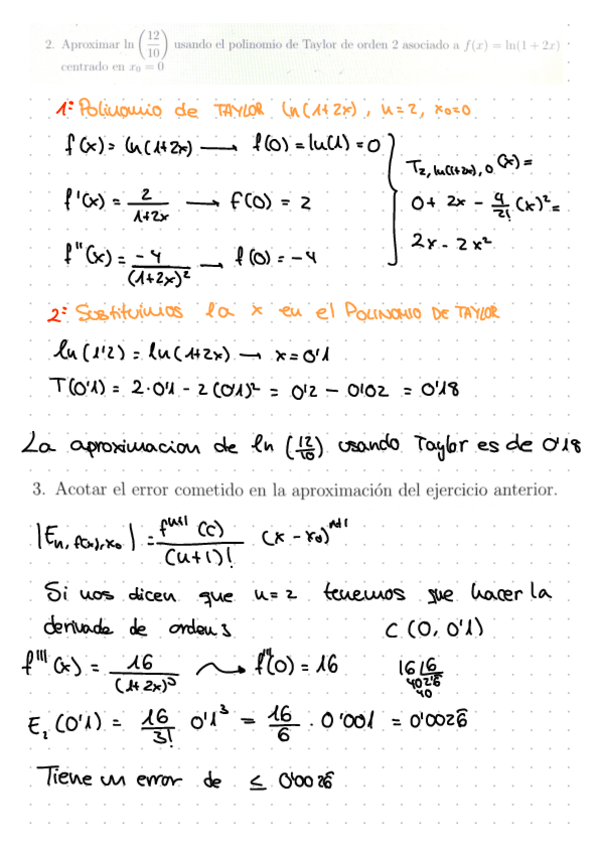 2. Aproximar ln (12/10) usando el polinomio de Taylor de orden 2 asociado a f(x) = ln(1 + 2x)
centrado en x₀ = 0
1º Polinomio de TAYLOR ln(1+2x), n=2, x₀=0
f(x) = ln(1+2x) → f(0) = ln(1) = 0
T₂, ln(1+2x), 0 (x) =
f'(x) = 2/(1+2x) → f(0) = 2
0 + 2x - 4/2! (x)² =
f''(x) = -4/(1+2x)² → f(0) = -4
2x - 2x²
2º Sustituimos la x en el POLINOMIO DE TAYLOR
ln(1'2) = ln(1+2x) → x = 0'1
T(0'1) = 2·0'1 - 2(0'1)² = 0'2 - 0'02 = 0'18
La aproximacion de ln (12/10) usando Taylor es de 0'18
3. Acotar el error cometido en la aproximación del ejercicio anterior.
|Eₙ, f(x), x₀| = fⁿ⁺¹(c)/(n+1)! (x - x₀)ⁿ⁺¹
Si nos dicen que n=2 tenemos que hacer la
derivada de orden 3 C (0, 0'1)
f'''(x) = 16/(1+2x)³ → f'''(0) = 16
16 |6
40 2'6
40
E₂(0'1) = 16/3! 0'1³ = 16/6 · 0'001 = 0'0026
Tiene un error de ≤ 0'0026